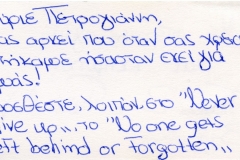 ύριε Πετρογιάννη,
ας αρκεί που όταν σας χρεια
τήκαμε ήσασταν εκεί για
μάς!
οσθέστε, λοιπόν, στο "Never
ive up„, το "No one gets
eft behind or forgotten„